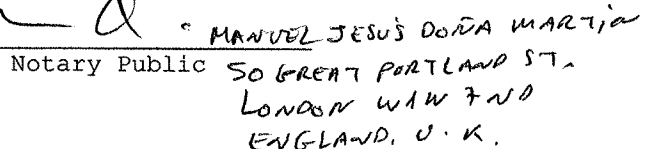 MANUEL JESÚS DOÑA MARTIN
Notary Public 50 GREAT PORTLAND ST.
LONDON W1W 7ND
ENGLAND. U.K.